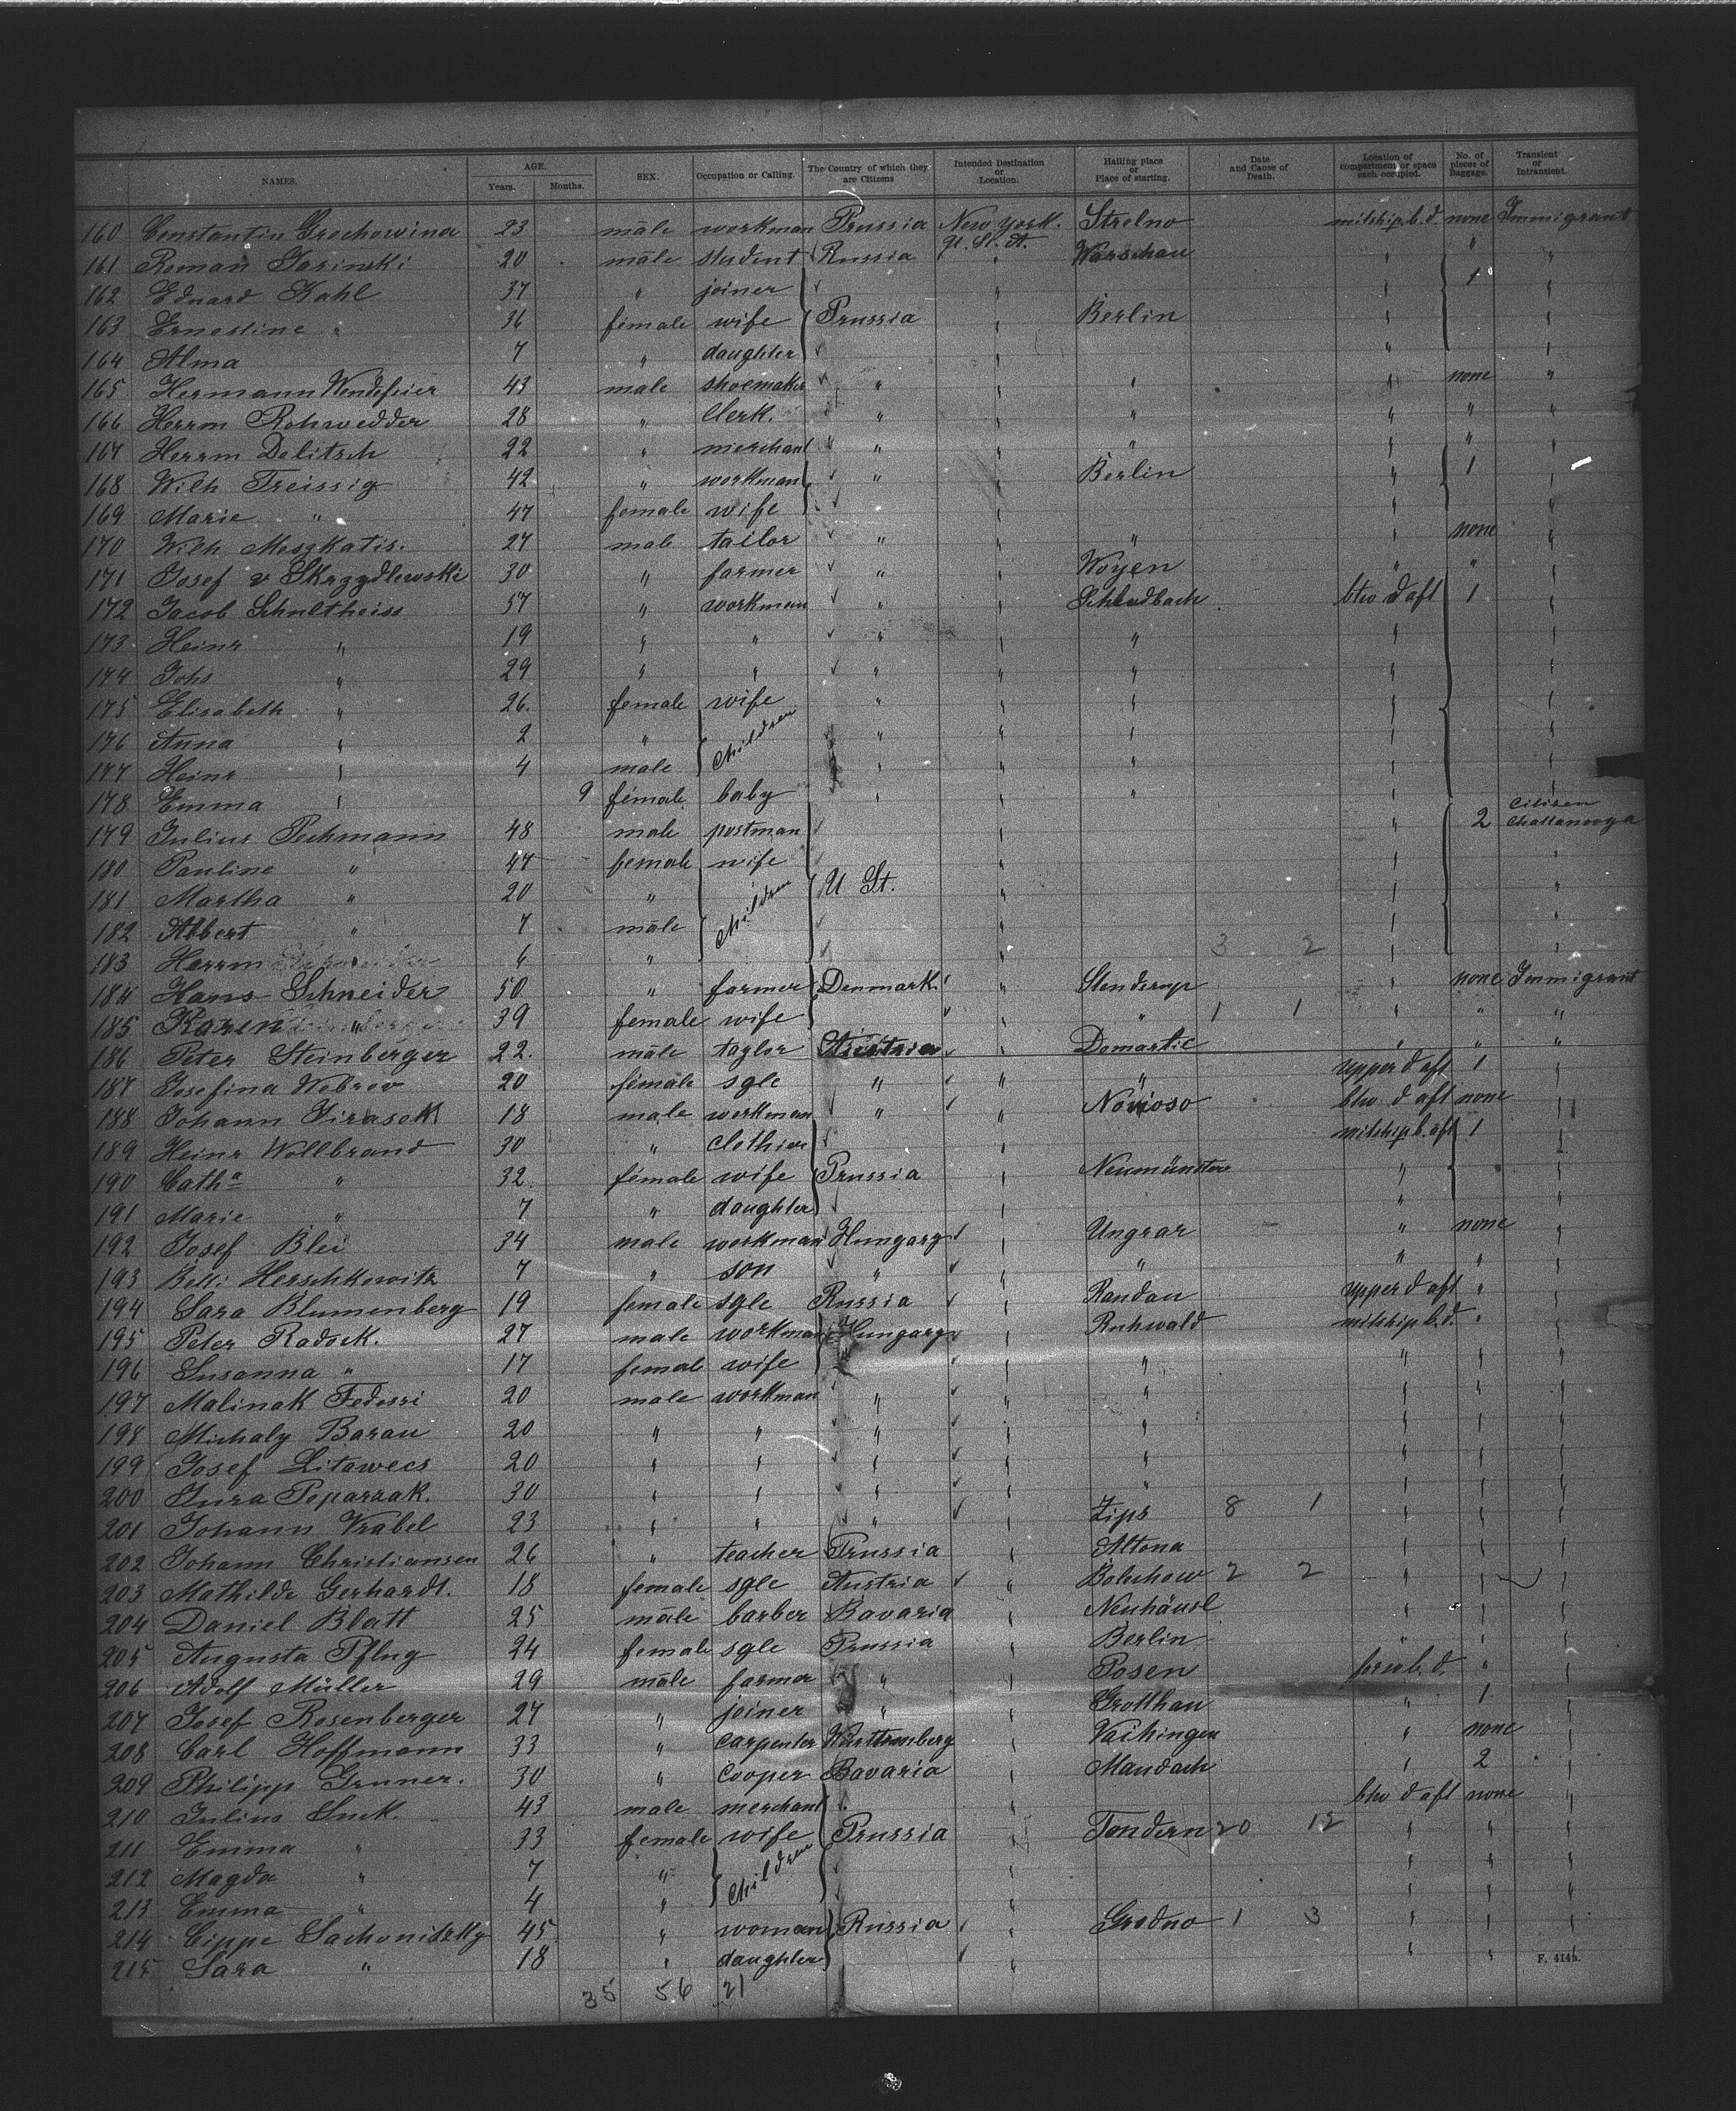 NAMES. AGE. Years. Months. SEX. Occupation or Calling. The Country of which they are Citizens Intended Destination or Location. Hailing place or Place of starting. Date and Cause of Death. Location of compartment or space each occupied. No. of pieces of Baggage. Transient or Intransient.
160 Constantin Grochowina 23 male workman Prussia New York. Strelno mitship b. d. none Immigrant
161 Roman Jasinski 20 male student Russia " Warschau " " "
162 Eduard Kahl 37 " joiner " " 1 "
163 Ernestine " 36 female wife Prussia " Berlin " "
164 Alma 7 " daughter " " "
165 Hermann Wendfeier 43 male shoemaker " " " " none "
166 Herrm Rohwedder 28 " Clerk. " " " " " "
167 Herrm Delitsch 22 " merchant " " " " " "
168 Wilh Treissig 42 " workman " " Berlin " 1 "
169 Marie " 47 female wife " " "
170 Wilh Meszkatis. 27 male tailor " " " " none "
171 Josef v Skrzydlewski 30 " farmer " " Woyen " " "
172 Jacob Schultheiss 57 " workman " " Schludbach btw d aft 1 "
173 Heinr " 19 " " " " " " "
174 Johs " 29 " " " " " " "
175 Elisabeth " 26. female wife " " " " "
176 Anna " 2 " Children " " " " "
177 Heinr " 4 male " " " " "
178 Emma " 9 female baby " " " " "
179 Julius Pechmann 48 male postman " " 2 Citizen Chattanooga
180 Pauline " 47 female wife " " "
181 Martha " 20 " Children U St. " " "
182 Albert " 7 male " " "
183 Herrm 6 " " 3 2 " "
184 Hans Schneider 50 " farmer Denmark " Stenderup " none Immigrant
185 Karen " 39 female wife " " 1 1 " " "
186 Peter Steinberger 22. male taylor Austria " Domastic " " "
187 Josefina Wobrov 20 female sgle " " " upper d aft 1 "
188 Johann Jirasek 18 male workman " " Novioso btw d aft none "
189 Heinr Wollbrand 30 " clothier " mitship b. aft 1 "
190 Catha " 32. female wife Prussia " Neumünster " "
191 Marie " 7 " daughter " " "
192 Josef Blei 34 male workman Hungary " Ungrar " none "
193 Bell: Herschkowitz 7 " son " " " " " "
194 Sara Blumenberg 19 female sgle Russia " Randau upper d aft " "
195 Peter Radock. 27 male workman Hungary " Ruhwald mitship b. d. " "
196 Susanna " 17 female wife " " " " "
197 Malinak Fedorri 20 male workman " " " " " "
198 Michaly Barau 20 " " " " " " " "
199 Josef Litawecs 20 " " " " " " " "
200 Jura Poparzak. 30 " " " " " " " "
201 Johann Vrabel 23 " " " " Zips 8 1 " " "
202 Johann Christiansen 26 " teacher Prussia " Altona " " "
203 Mathilde Gerhardt. 18 female sgle Austria " Bolechow 2 2 " " "
204 Daniel Blatt 25 male barber Bavaria " Neuhäusl " " "
205 Augusta Pflug 24 female sgle Prussia " Berlin " " "
206 Adolf Müller 29 male farmer " " Posen forw b. d. " "
207 Josef Rosenberger 27 " joiner " " Grotthau " 1 "
208 Carl Hoffmann 33 " Carpenter Württemberg " Vaihingen " none "
209 Philipp Gruner. 30 " Cooper Bavaria " Maudach " 2 "
210 Julius Suck. 43 male merchant " btw d aft none "
211 Emma " 33 female wife Prussia " Tondern 20 12 " " "
212 Magda " 7 " Children " " " "
213 Emma " 4 " " " " "
214 Cippe Sachonitzky 45 " woman Russia " Grodno 1 3 " " "
215 Sara " 18 " daughter " " "
35 56 21
F. 414b.